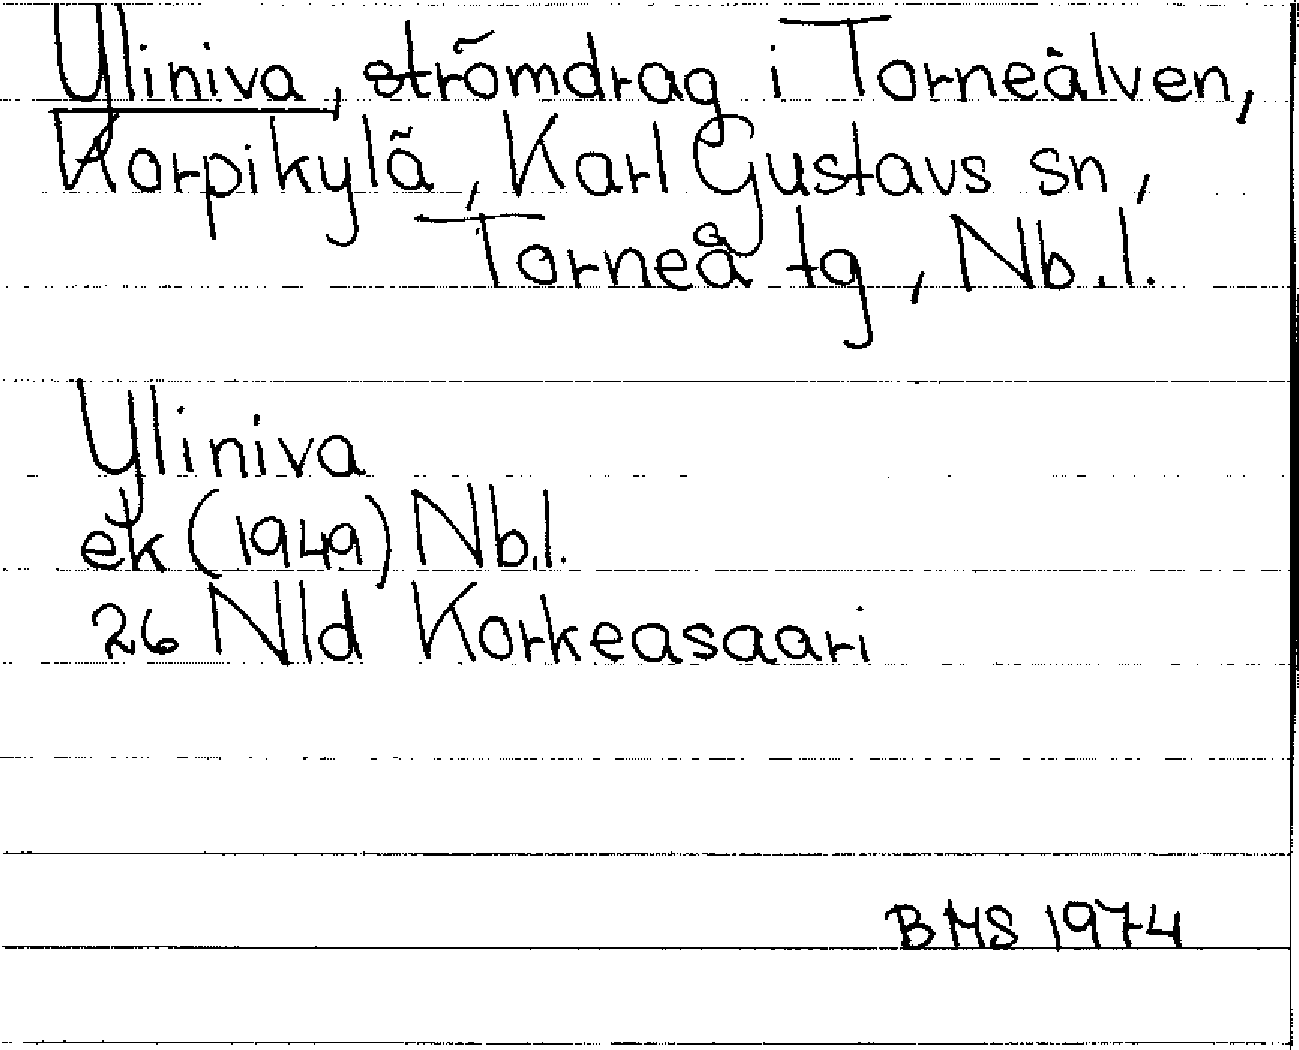 Yliniva, strömdrag i Torneälven,
Korpikylä, Karl Gustavs sn,
Torneå tg, Nb.l.
Yliniva
ek (1949) Nb.l.
26 Nld Korkeasaari
BMS 1974